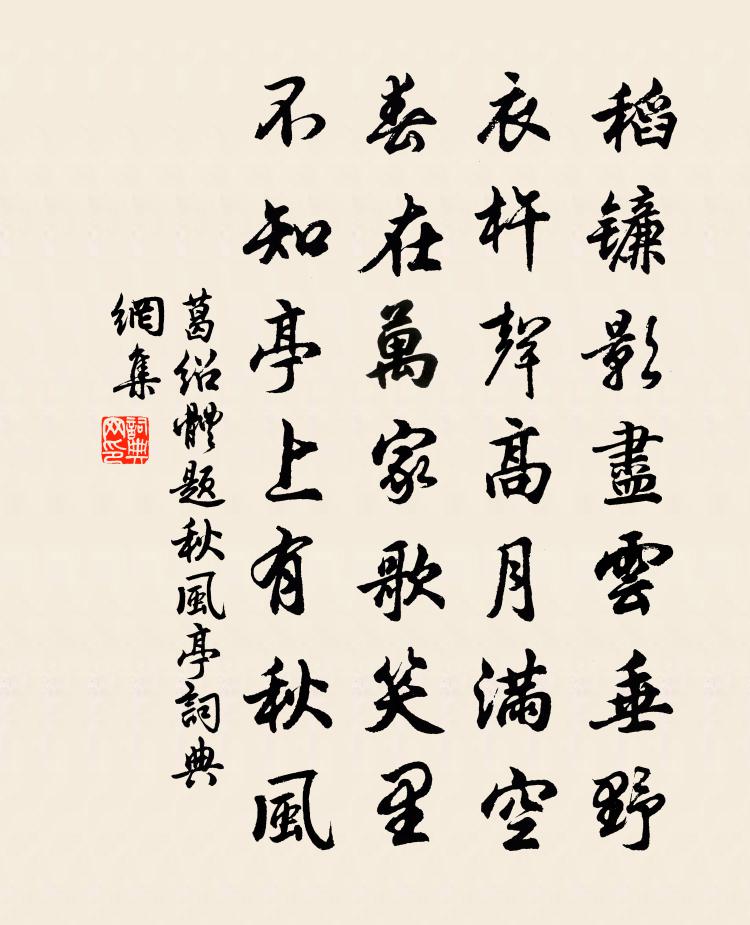 稻镰影盡雲垂野
衣杵聲高月满空
春在萬家歌笑里
不知亭上有秋風
葛绍體题秋風亭詞典
網集
詞典网印